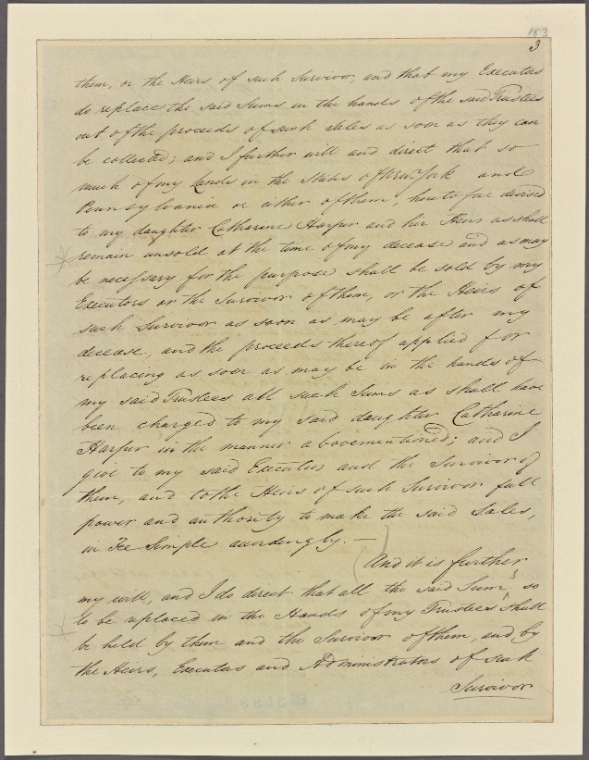 183
3
them, or the Heirs of such Survivor and that my Executors
do replace the said Sums in the hands of the said Trustees
out of the proceeds of such Sales as soon as they can
be collected; and I further will and direct that so
much of my Lands in the States of New York and
Pennsylvania or either of them, heretofore devised
to my daughter Catharine Harper and her Heirs as shall
remain unsold at the time of my decease and as may
be necessary for the purpose shall be sold by my
Executors or the Survivor of them, or the Heirs of
such Survivor as soon as may be after my
decease, and the proceeds thereof applied for
replacing as soon as may be in the hands of
my said Trustees all such Sums as shall have
been charged to my said daughter Catharine
Harper in the manner abovementioned; and I
give to my said Executors and the Survivor of
them, and to the Heirs of such Survivor full
power and authority to make the said Sales,
in Fee Simple accordingly. —
And it is further
my will, and I do direct that all the said Sums, so
to be replaced in the Hands of my Trustees shall
be held by them and the Survivor of them, and by
the Heirs, Executors and Administrators of such
Survivor